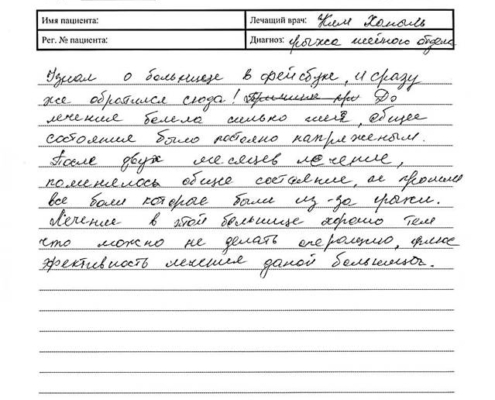 Имя пациента: Лечащий врач: Ким Ханыль
Рег. № пациента: Диагноз: грыжа шейного отдела
Узнал о больнице в фейсбук, и сразу
же обратился сюда! До
лечения болела сильно шея, общее
состояния было постояно напряженым.
После двух месяцев лечение,
поменялось общее состояние, и прошли
все боли которое были из-за грыжи.
Лечение в этой больнице хорошо тем
что можно не делать операцию, плюс
эфективность лечения даной больницы.